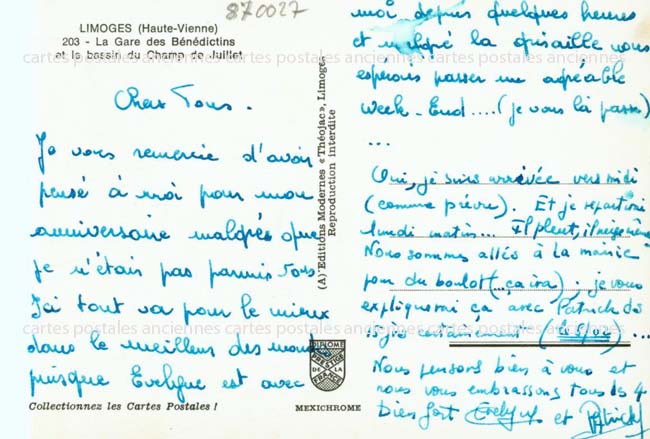 870027
LIMOGES (Haute-Vienne)
203 - La Gare des Bénédictins
et le bassin du Champ de Juillet
cartes postales anciennes cartes postales anciennes cartes postales anciennes
Chers Tous.
Je vous remercie d'avoir
pensé à moi pour mon
anniversaire malgrés que
je n'étais pas parmis vous
Ici tout va pour le mieux
dans le meilleur des mondes
puisque Evelyne est avec
Collectionnez les Cartes Postales !
(A) Editions Modernes « Théojac », Limoges
Reproduction interdite
MEXICHROME
PRESTIGE
DE LA
FRANCE
moi depuis quelques heures
et malgré la grisaille nous
esperons passer un agréable
Week-End....(je vous la passe)
...
Oui, je suis arrivée vers midi
(comme prévu). Et je repartirai
lundi matin... Il pleut, il
Nous sommes allés à la mairie
pour du boulot (...ça ira). je vous
expliquerai ça avec Patrick
certainement ...
Nous pensons bien à vous et
nous vous embrassons tous les 4
Bien fort Evelyne et Patrick
cartes postales anciennes cartes postales anciennes cartes postales anciennes